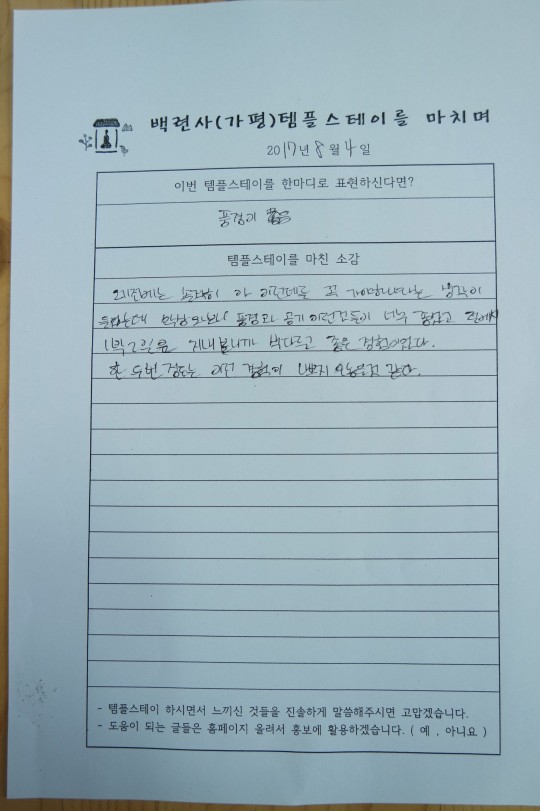 백련사(가평)템플스테이를 마치며
2017년 8월 4일
이번 템플스테이를 한마디로 표현하신다면?
풍경이
템플스테이를 마친 소감
아 이런데를 꼭 가야하나라는 생각이
들었는데 막상 오니까 풍경고 공기 이런것들이 너무 좋았고 절에서
1박2일을 지내보니까 색다르고 좋은 경험이었다.
한 두번 정도는 이런 경험이 나쁘지 않을것 같다.
- 템플스테이 하시면서 느끼신 것들을 진솔하게 말씀해주시면 고맙겠습니다.
- 도움이 되는 글들은 홈페이지 올려서 홍보에 활용하겠습니다. ( 예 , 아니요 )